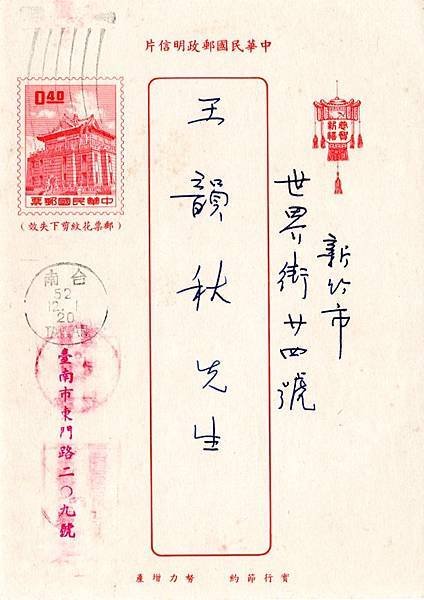 中華民國郵政明信片
恭賀
新禧
新竹市
世界街廿四號
王韻秋先生
0.40
中華民國郵票
(郵票花紋剪下失效)
台南
52
12.1
20
TAINAN
臺南市東門路二〇九號
實行節約 努力增產